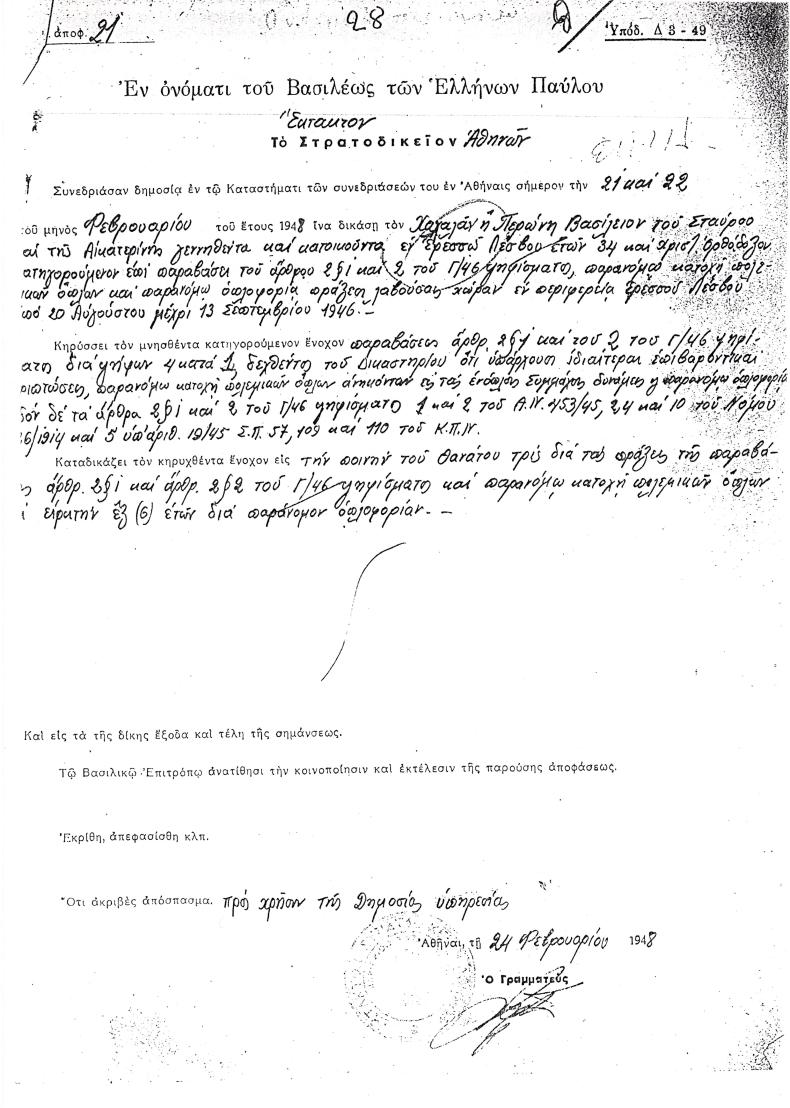 ἀποφ. 21
28
Ὑπόδ. Δ 3 - 49
Ἐν ὀνόματι τοῦ Βασιλέως τῶν Ἑλλήνων Παύλου
Ἔκτακτον
Τὸ Στρατοδικεῖον Ἀθηνῶν
Συνεδριάσαν δημοσίᾳ ἐν τῷ Καταστήματι τῶν συνεδριάσεών του ἐν Ἀθήναις σήμερον τὴν 21 καί 22
τοῦ μηνὸς Φεβρουαρίου τοῦ ἔτους 1948 ἵνα δικάσῃ τὸν ἤ Περώνη Βασίλειον τοῦ Σταύρου
αί τῆς Αἰκατερίνης γεννηθέντα καί κατοικοῦντα ἐν Ἐρεσσῷ Λέσβου ἐτῶν 34 καί Ὀρθόδοξον
ατηγορούμενον ἐπί παραβάσει τοῦ ἄρθρου 2§1 καί 2 τοῦ Γ/46 ψηφίσματος, παρανόμῳ κατοχῇ πολε-
μικῶν ὅπλων καί παρανόμῳ ὁπλοφορίᾳ πράξεις λαβούσας χώραν ἐν περιφερείᾳ Ἐρεσσοῦ Λέσβου
πό 20 Αὐγούστου μέχρι 13 Σεπτεμβρίου 1946.—
Κηρύσσει τὸν μνησθέντα κατηγορούμενον ἔνοχον παραβάσεως ἄρθρ. 2§1 καί τοῦ 2 τοῦ Γ/46 ψηφί-
ατος διά ψήφων 4 κατά 1, δεχθέντος τοῦ Δικαστηρίου ὅτι ὑπάρχουσι ἰδιαίτεραι ἐπιβαρυντικαί
ριπτώσεις, παρανόμῳ κατοχῇ πολεμικῶν ὅπλων ἀνηκόντων εἰς τάς ἐνόπλους Συμμάχους δυνάμεις ἤ παρανόμῳ ὁπλοφορίᾳ
δόν δέ τά ἄρθρα 2§1 καί 2 τοῦ Γ/46 ψηφίσματος 1 καί 2 τοῦ Α.Ν. 453/45, 2,4 καί 10 τοῦ Νόμου
6/1914 καί 5 ὑπ' ἀριθ. 19/45 Σ.Π. 57, 109 καί 110 τοῦ Κ.Π.Ν.
Καταδικάζει τὸν κηρυχθέντα ἔνοχον εἰς τήν ποινήν τοῦ Θανάτου τρίς διά τάς πράξεις τῆς παραβά-
ς ἄρθρ. 2§1 καί ἄρθρ. 2§2 τοῦ Γ/46 ψηφίσματος καί παρανόμῳ κατοχῇ πολεμικῶν ὅπλων
ί εἱρκτήν ἕξ (6) ἐτῶν διά παράνομον ὁπλοφορίαν.—
Καὶ εἰς τὰ τῆς δίκης ἔξοδα καὶ τέλη τῆς σημάνσεως.
Τῷ Βασιλικῷ Ἐπιτρόπῳ ἀνατίθησι τὴν κοινοποίησιν καὶ ἐκτέλεσιν τῆς παρούσης ἀποφάσεως.
Ἐκρίθη, ἀπεφασίσθη κλπ.
Ὅτι ἀκριβὲς ἀπόσπασμα. πρός χρῆσιν τῆς Δημοσίας ὑπηρεσίας
Ἀθῆναι, τῇ 24 Φεβρουαρίου 1948
Ὁ Γραμματεὺς